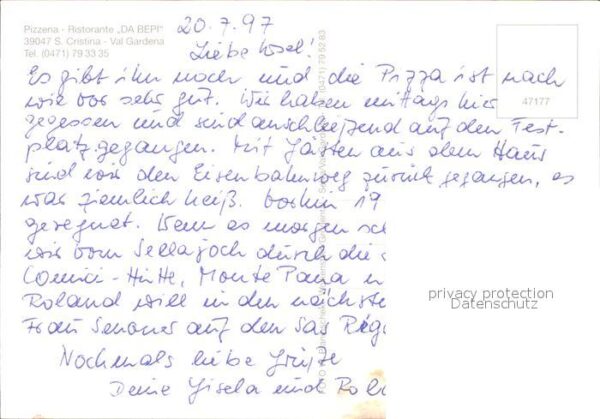 Pizzeria - Ristorante „DA BEPI"
39047 S. Cristina - Val Gardena
Tel. (0471) 79 33 35
20.7.97
Liebe Usel!
Es gibt ihn noch und die Pizza ist nach
wie vor sehr gut. Wir haben mittags hier
gegessen und sind anschließend auf den Fest-
platz gegangen. Mit Gästen aus dem Haus
sind wir den Eisenbahnweg zurück gegangen, es
war ziemlich heiß. Vorhin 19
geregnet. Wenn es morgen sc
wir vom Sellajoch durch die
Comici-Hütte, Monte Pana
Roland will in den nächste
Frau Senoner auf den Sas Rigo
Nochmals liebe Grüße
Deine Gisela und Rol
(0471) 79 52 83
47177
privacy protection
Datenschutz